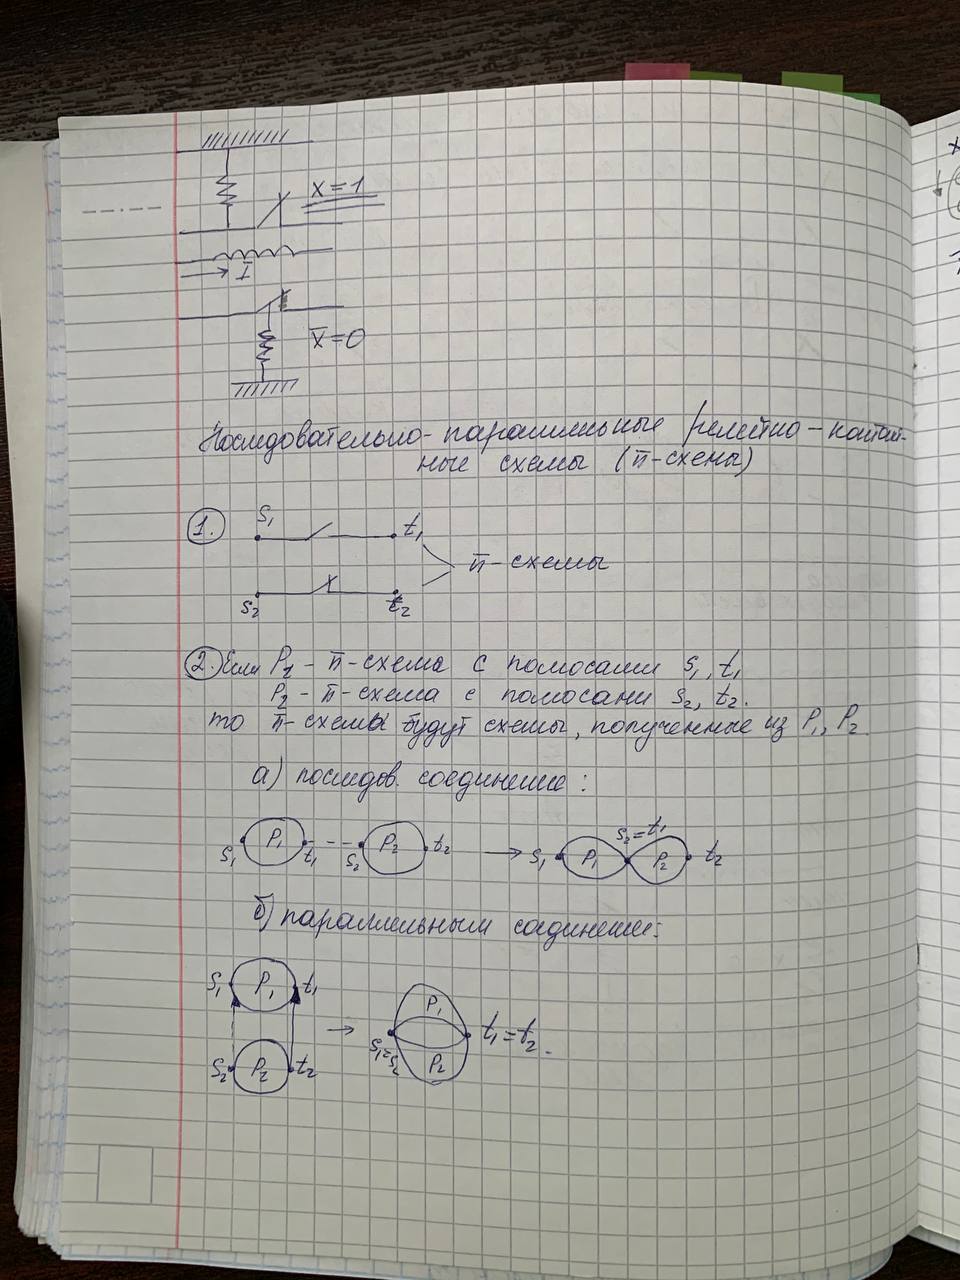 x = 1
I
x̅ = 0
Последовательно-параллельные релейно-контакт-
ные схемы (π-схемы)
1. S₁ t₁
π-схемы
S₂ t₂
2. Если P₁ - π-схема с полюсами S₁, t₁
P₂ - π-схема с полюсами S₂, t₂.
то π-схемы будут схемы, полученные из P₁, P₂.
а) послидов. соединение:
S₁ P₁ t₁ S₂ P₂ t₂ → S₁ P₁ S₂=t₁ P₂ t₂
б) параллельным соединение:
S₁ P₁ t₁
S₂ P₂ t₂ → S₁=S₂ P₁ P₂ t₁=t₂.